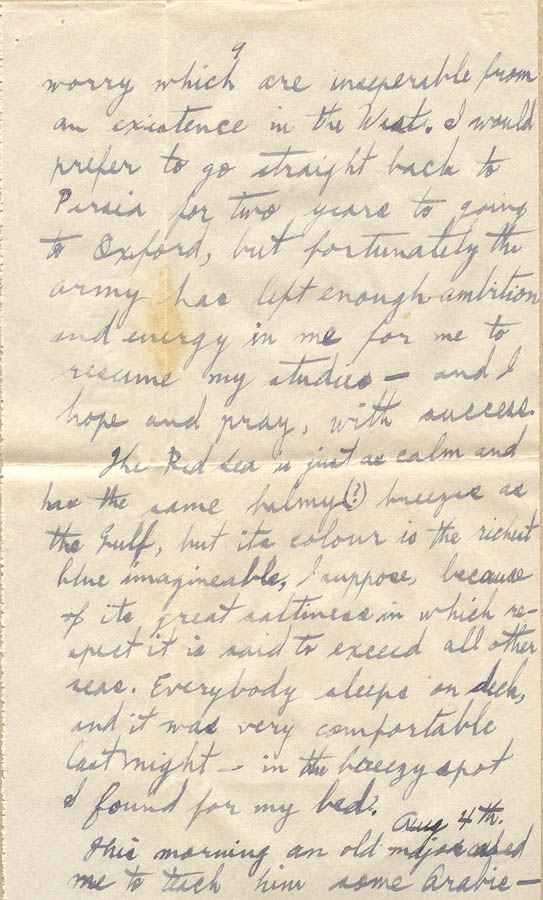 9
worry which are inseperable from
an existence in the West. I would
prefer to go straight back to
Persia for two years to going
to Oxford, but fortunately the
army has left enough ambition
and energy in me for me to
resume my studies — and I
hope and pray, with success.
The Red Sea is just as calm and
has the same balmy(?) breezes as
the Gulf, but its colour is the richest
blue imagineable, I suppose, because
of its great saltiness in which re-
spect it is said to exceed all other
seas. Everybody sleeps on deck,
and it was very comfortable
last night — in the breezy spot
I found for my bed.
Aug 4th.
This morning an old major asked
me to teach him some Arabic —